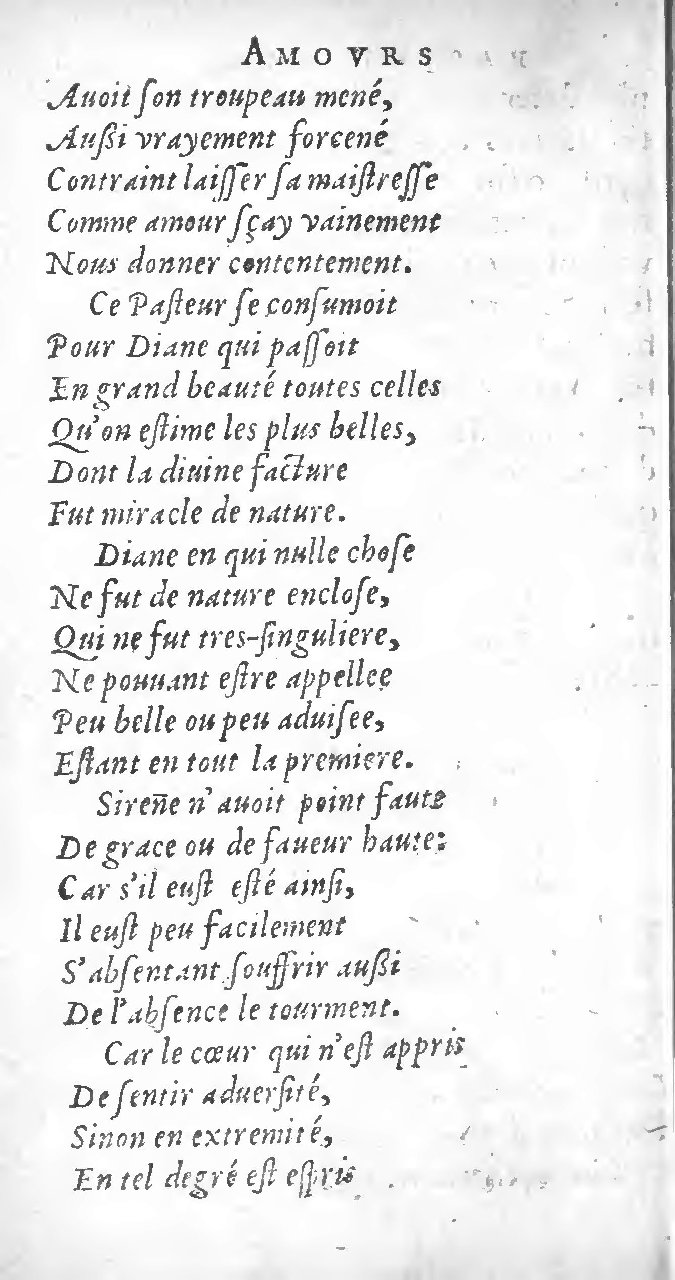 AMOVRS
Auoit ſon troupeau mené,
Außi vrayement forcené
Contraint laiſſer ſa maiſtreſſe
Comme amour ſçay vainement
Nous donner contentement.
Ce Paſteur ſe conſumoit
Pour Diane qui paſſoit
En grand beauté toutes celles
Qu'on eſtime les plus belles,
Dont la diuine facture
Fut miracle de nature.
Diane en qui nulle choſe
Ne fut de nature encloſe,
Qui ne fut tres-ſinguliere,
Ne pouuant eſtre appellee
Peu belle ou peu aduiſee,
Eſtant en tout la premiere.
Sireñe n'auoit point faute
De grace ou de faueur haute:
Car s'il euſt eſté ainſi,
Il euſt peu facilement
S'abſentant ſouffrir außi
De l'abſence le tourment.
Car le cœur qui n'eſt appris
De ſentir aduerſité,
Sinon en extremité,
En tel degré eſt eſpris